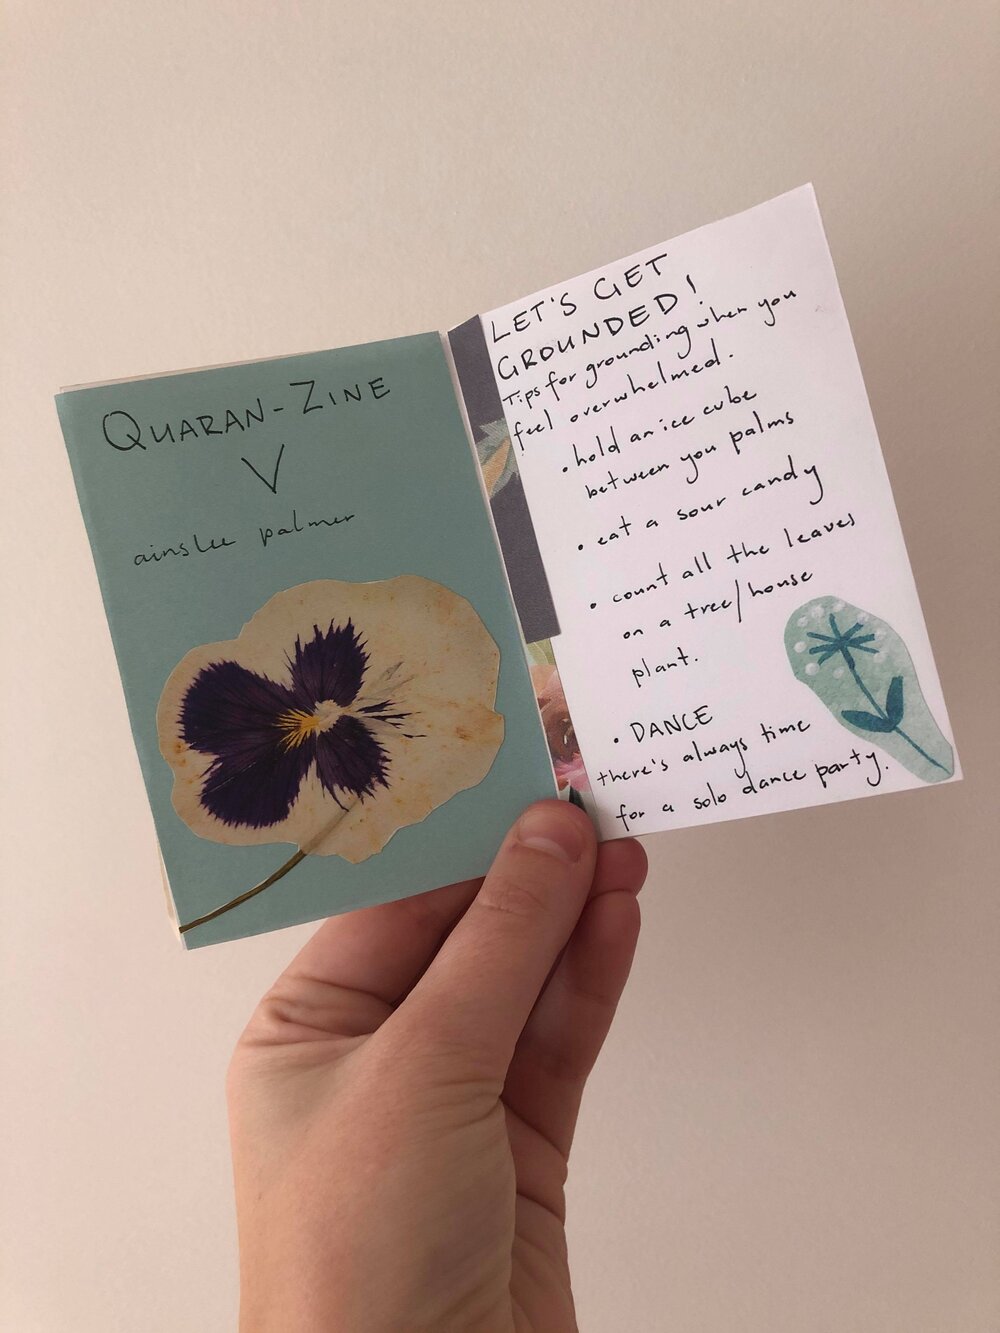 QUARAN-ZINE
V
ainslee palmer
LET'S GET
GROUNDED!
Tips for grounding when you
feel overwhelmed.
• hold an ice cube
between you palms
• eat a sour candy
• count all the leaves
on a tree/house
plant.
• DANCE
there's always time
for a solo dance party.